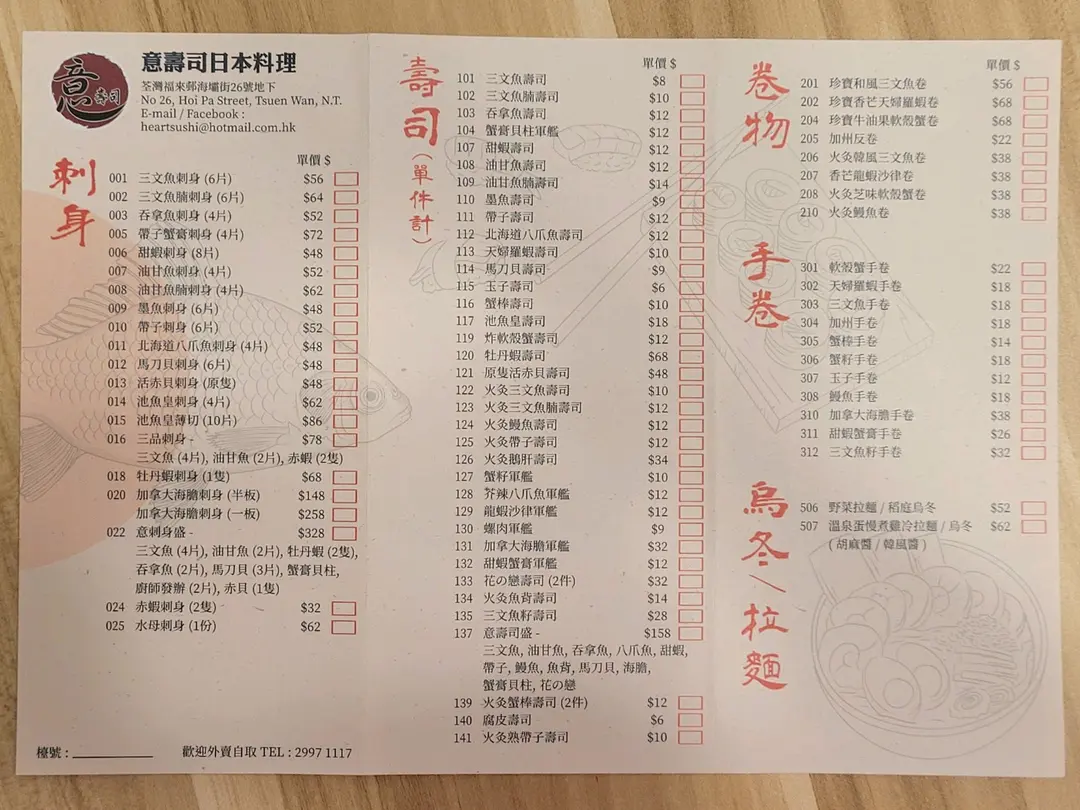 意
壽司
意壽司日本料理
荃灣福來邨海壩街26號地下
No 26, Hoi Pa Street, Tsuen Wan, N.T.
E-mail / Facebook :
heartsushi@hotmail.com.hk
刺身
單價 $
001 三文魚刺身 (6片) $56
002 三文魚腩刺身 (6片) $64
003 吞拿魚刺身 (4片) $52
005 帶子蟹膏刺身 (4片) $72
006 甜蝦刺身 (8片) $48
007 油甘魚刺身 (4片) $52
008 油甘魚腩刺身 (4片) $62
009 墨魚刺身 (6片) $48
010 帶子刺身 (6片) $52
011 北海道八爪魚刺身 (4片) $48
012 馬刀貝刺身 (6片) $48
013 活赤貝刺身 (原隻) $48
014 池魚皇刺身 (4片) $62
015 池魚皇薄切 (10片) $86
016 三品刺身 - $78
三文魚 (4片), 油甘魚 (2片), 赤蝦 (2隻)
018 牡丹蝦刺身 (1隻) $68
020 加拿大海膽刺身 (半板) $148
加拿大海膽刺身 (一板) $258
022 意刺身盛 - $328
三文魚 (4片), 油甘魚 (2片), 牡丹蝦 (2隻),
吞拿魚 (2片), 馬刀貝 (3片), 蟹膏貝柱,
廚師發辦 (2片), 赤貝 (1隻)
024 赤蝦刺身 (2隻) $32
025 水母刺身 (1份) $62
檯號 :
歡迎外賣自取 TEL : 2997 1117
壽司 (單件計)
單價 $
101 三文魚壽司 $8
102 三文魚腩壽司 $10
103 吞拿魚壽司 $12
104 蟹膏貝柱軍艦 $12
107 甜蝦壽司 $12
108 油甘魚壽司 $12
109 油甘魚腩壽司 $14
110 墨魚壽司 $9
111 帶子壽司 $12
112 北海道八爪魚壽司 $12
113 天婦羅蝦壽司 $10
114 馬刀貝壽司 $9
115 玉子壽司 $6
116 蟹棒壽司 $10
117 池魚皇壽司 $18
119 炸軟殼蟹壽司 $12
120 牡丹蝦壽司 $68
121 原隻活赤貝壽司 $48
122 火灸三文魚壽司 $10
123 火灸三文魚腩壽司 $12
124 火灸鰻魚壽司 $12
125 火灸帶子壽司 $12
126 火灸鵝肝壽司 $34
127 蟹籽軍艦 $10
128 芥辣八爪魚軍艦 $12
129 龍蝦沙律軍艦 $12
130 螺肉軍艦 $9
131 加拿大海膽軍艦 $32
132 甜蝦蟹膏軍艦 $12
133 花の戀壽司 (2件) $32
134 火灸魚背壽司 $14
135 三文魚籽壽司 $28
137 意壽司盛 - $158
三文魚, 油甘魚, 吞拿魚, 八爪魚, 甜蝦,
帶子, 鰻魚, 魚背, 馬刀貝, 海膽,
蟹膏貝柱, 花の戀
139 火灸蟹棒壽司 (2件) $12
140 腐皮壽司 $6
141 火灸熟帶子壽司 $10
卷物
單價 $
201 珍寶和風三文魚卷 $56
202 珍寶香芒天婦羅蝦卷 $68
204 珍寶牛油果軟殼蟹卷 $68
205 加州反卷 $22
206 火灸韓風三文魚卷 $38
207 香芒龍蝦沙律卷 $38
208 火灸芝味軟殼蟹卷 $38
210 火灸鰻魚卷 $38
手卷
301 軟殼蟹手卷 $22
302 天婦羅蝦手卷 $18
303 三文魚手卷 $18
304 加州手卷 $18
305 蟹棒手卷 $14
306 蟹籽手卷 $18
307 玉子手卷 $12
308 鰻魚手卷 $18
310 加拿大海膽手卷 $38
311 甜蝦蟹膏手卷 $26
312 三文魚籽手卷 $32
烏冬/拉麵
506 野菜拉麵 / 稻庭烏冬 $52
507 溫泉蛋慢煮雞冷拉麵 / 烏冬 $62
( 胡麻醬 / 韓風醬 )